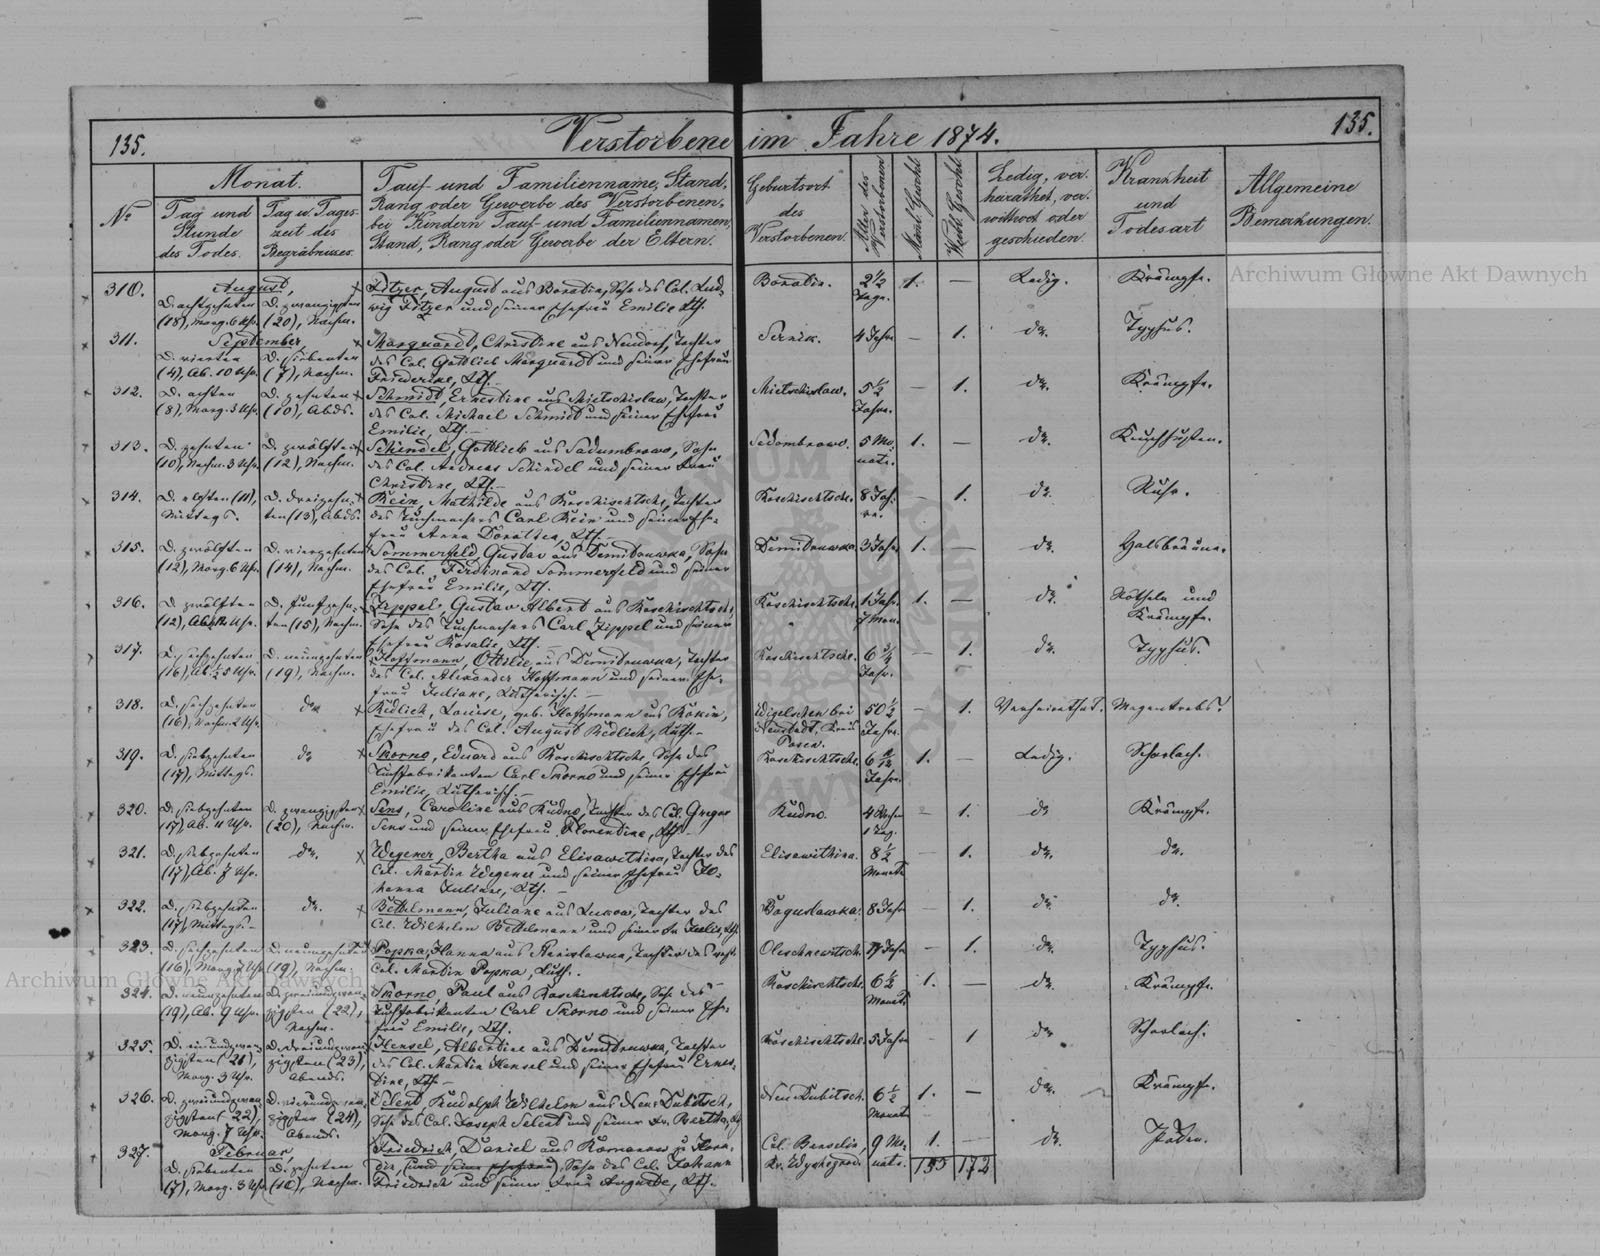 135.
Verstorbene im Jahre 1874.
135.
Nº
Monat.
Tag und Stunde des Todes.
Tag u. Tageszeit des Begräbnisses.
Tauf- und Familienname, Stand,
Rang oder Gewerbe des Verstorbenen,
bei Kindern Tauf- und Familiennamen,
Stand, Rang oder Gewerbe der Eltern.
Geburtsort
des
Verstorbenen.
Alter des Verstorbenen
Männl. Geschl.
Weibl. Geschl.
Ledig, ver-
heirathet, ver-
wittwet oder
geschieden.
Krankheit
und
Todesart
Allgemeine
Bemerkungen.
310.
August,
D. achtzehnten
(18), Morg. 6 Uhr.
D. zwanzigsten
(20), Nachm.
August aus Boratin, Sohn des Col. Lud-
wig und seiner Ehefrau Emilie, Lth.
Boratin.
2 1/2
1.
—
Ledig.
Krämpfe.
311.
September,
D. vierten
(4), Ab. 10 Uhr.
D. siebenten
(7), Nachm.
Marquardt, Christine aus Neudorf, Tochter
des Col. Gottlieb Marquardt und seiner Ehefrau
Friederike, Lth.
Sernik.
4 Jahre
—
1.
do.
Typhus.
312.
D. achten
(8), Morg. 3 Uhr.
D. zehnten
(10), Abds.
Schmidt, Ernestine aus Mietschislaw, Tochter
des Col. Michael Schmidt und seiner Ehefrau
Emilie, Lth. —
Mietschislaw.
5 1/2
Jahre.
—
1.
do.
Krämpfe.
313.
D. zehnten
(10), Nachm. 3 Uhr.
D. zwölften
(12), Nachm.
Schindel, Gottlieb aus Sadumbrowo, Sohn
des Col. Andreas Schindel und seiner Frau
Christine, Lth. —
Sedombrowo.
5 Mo-
nate.
1.
—
do.
Keuchhusten.
314.
D. elften (11),
Mittags.
D. dreizehn-
ten (13), Abds.
Kein, Mathilde aus Roschischtsche, Tochter
des Tuchmachers Carl Kein und seiner Ehe-
frau Anna Dorothea, Lth. —
Roschischtsche.
8 Jah-
re.
—
1.
do.
Ruhr.
315.
D. zwölften
(12), Morg. 6 Uhr.
D. vierzehnten
(14), Nachm.
Sommerfeld, Gustav aus Demidowka, Sohn
des Col. Ferdinand Sommerfeld und seiner
Ehefrau Emilie, Lth.
Demidowka
3 Jahre
1.
—
do.
Halsbräune.
316.
D. zwölften
(12), Uhr.
D. fünfzehn-
ten (15), Nachm.
Zippel, Gustav Albert aus Roschischtsche,
Sohn des Tuchmachers Carl Zippel und seiner
Ehefrau Rosalie, Lth. —
Roschischtsche.
1 Jahr.
7 Mon.
1.
—
do.
Rötheln und
Krämpfe.
317.
D. sechzehnten
(16), Ab. 1/2 5 Uhr.
D. neunzehnten
(19), Nachm.
Hoffmann, Ottilie aus Demidowka, Tochter
des Col. Alexander Hoffmann und seiner Ehe-
frau Juliane, Lutherisch. —
Roschischtsche.
6 3/4
Jahr.
—
1.
do.
Typhus.
318.
D. sechzehnten
(16), Nachm. 2 Uhr.
do.
Redlich, Louise, geb. Hoffmann aus Rokin,
Ehefrau des Col. August Redlich, Luth. —
bei
Neustadt, Kreis
Posen.
50 1/2
Jahre.
—
1.
Verheirathet.
Magenkrebs.
319.
D. siebzehnten
(17), Mittags.
do
Skorno, Eduard aus Roschischtsche, Sohn des
Tuchfabrikanten Carl Skorno und seiner Ehefrau
Emilie, Lutherisch. —
Roschischtsche.
6
Jahre.
1.
—
Ledig.
Scharlach.
320.
D. siebzehnten
(17) Ab. 11 Uhr.
D. zwanzigsten
(20), Nachm.
Sens, Caroline aus Rudno, Tochter des Col. Gregor
Sens und seiner Ehefrau Florentine, Lth. —
Rudno.
4 Wochen
1 Tag.
—
1.
do
Krämpfe.
321.
D. siebzehnten
(17), Ab. 7 Uhr.
do.
Wegener, Bertha aus Elisawethina, Tochter des
Col. Martin Wegener und seiner Ehefrau Jo-
hanna Juliane, Lth. —
Elisawithina.
8 1/2
Monate
—
1.
do.
do.
322.
D. siebzehnten
(17) Mittags. —
do.
Bethelmann, Juliane aus Lukow, Tochter des
Col. Wilhelm Bethelmann und seiner Fr.
Boguslawka.
8 Jahre
—
1.
do.
do.
323.
D. sechzehnten
(16), Morg. Uhr
D. neunzehnten
(19), Nachm.
Popka, Hanna aus Tochter des
Col. Martin Popka, Luth. .
Oleschnewitsch.
Jahr
—
1.
do.
Typhus.
324.
D. neunzehnten
(19), Ab. 9 Uhr.
D. zweiundzwan-
zigsten (22),
Nachm.
Skorno Paul aus Roschischtsche, Sohn des —
Tuchfabrikanten Carl Skorno und seiner Ehe-
frau Emilie, Lth.
Roschischtsche.
6 1/2
Monate
1.
—
do.
Krämpfe.
325.
D. einundzwan-
zigsten (21),
Morg. 3 Uhr.
D. dreiundzwan-
zigsten (23),
Abends.
Hensel, Albertine aus Demidowka, Tochter
des Col. Martin Hensel und seiner Ehefrau Ernes-
tine, Lth. —
Roschischtsche.
5 Jahre
—
1
do.
Scharlach.
326.
D. zweiundzwan-
zigsten (22),
Morg. 7 Uhr.
D. vierundzwan-
zigsten (24),
Abends.
Selent Rudolph Wilhelm aus Neu-Dubitsch,
Sohn des Col. Joseph Selent und seiner Fr. Bertha,
Neu Dubitsch.
6 1/2
Monate
1.
—
do.
Krämpfe.
327.
Februar,
D. siebenten
(7), Morg. 3 Uhr
D. zehnten
(10), Nachm.
Friedrich, Daniel aus Romanow
Sohn des Col. Johann
Friedrich und seiner Frau Auguste, Lth. —
Col.
Kr.
9 Mo-
nate.
1.
—
do.
Pocken.
155
172
Archiwum Główne Akt Dawnych
Archiwum Główne Akt Dawnych